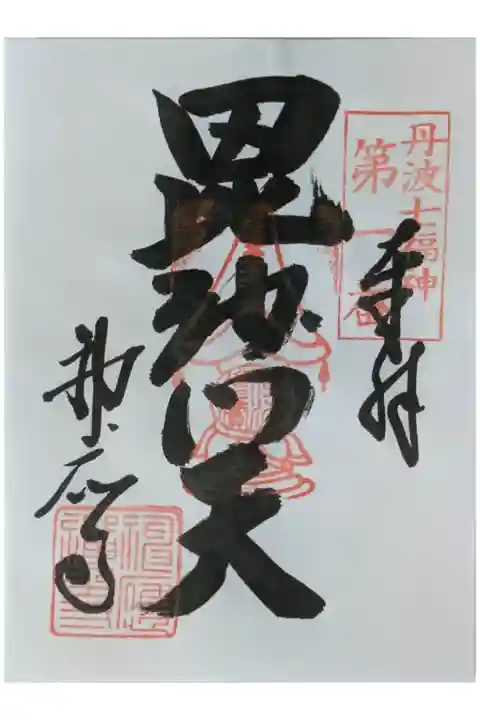 丹波七福神
第一番
奉拝
毘沙門天
神應寺